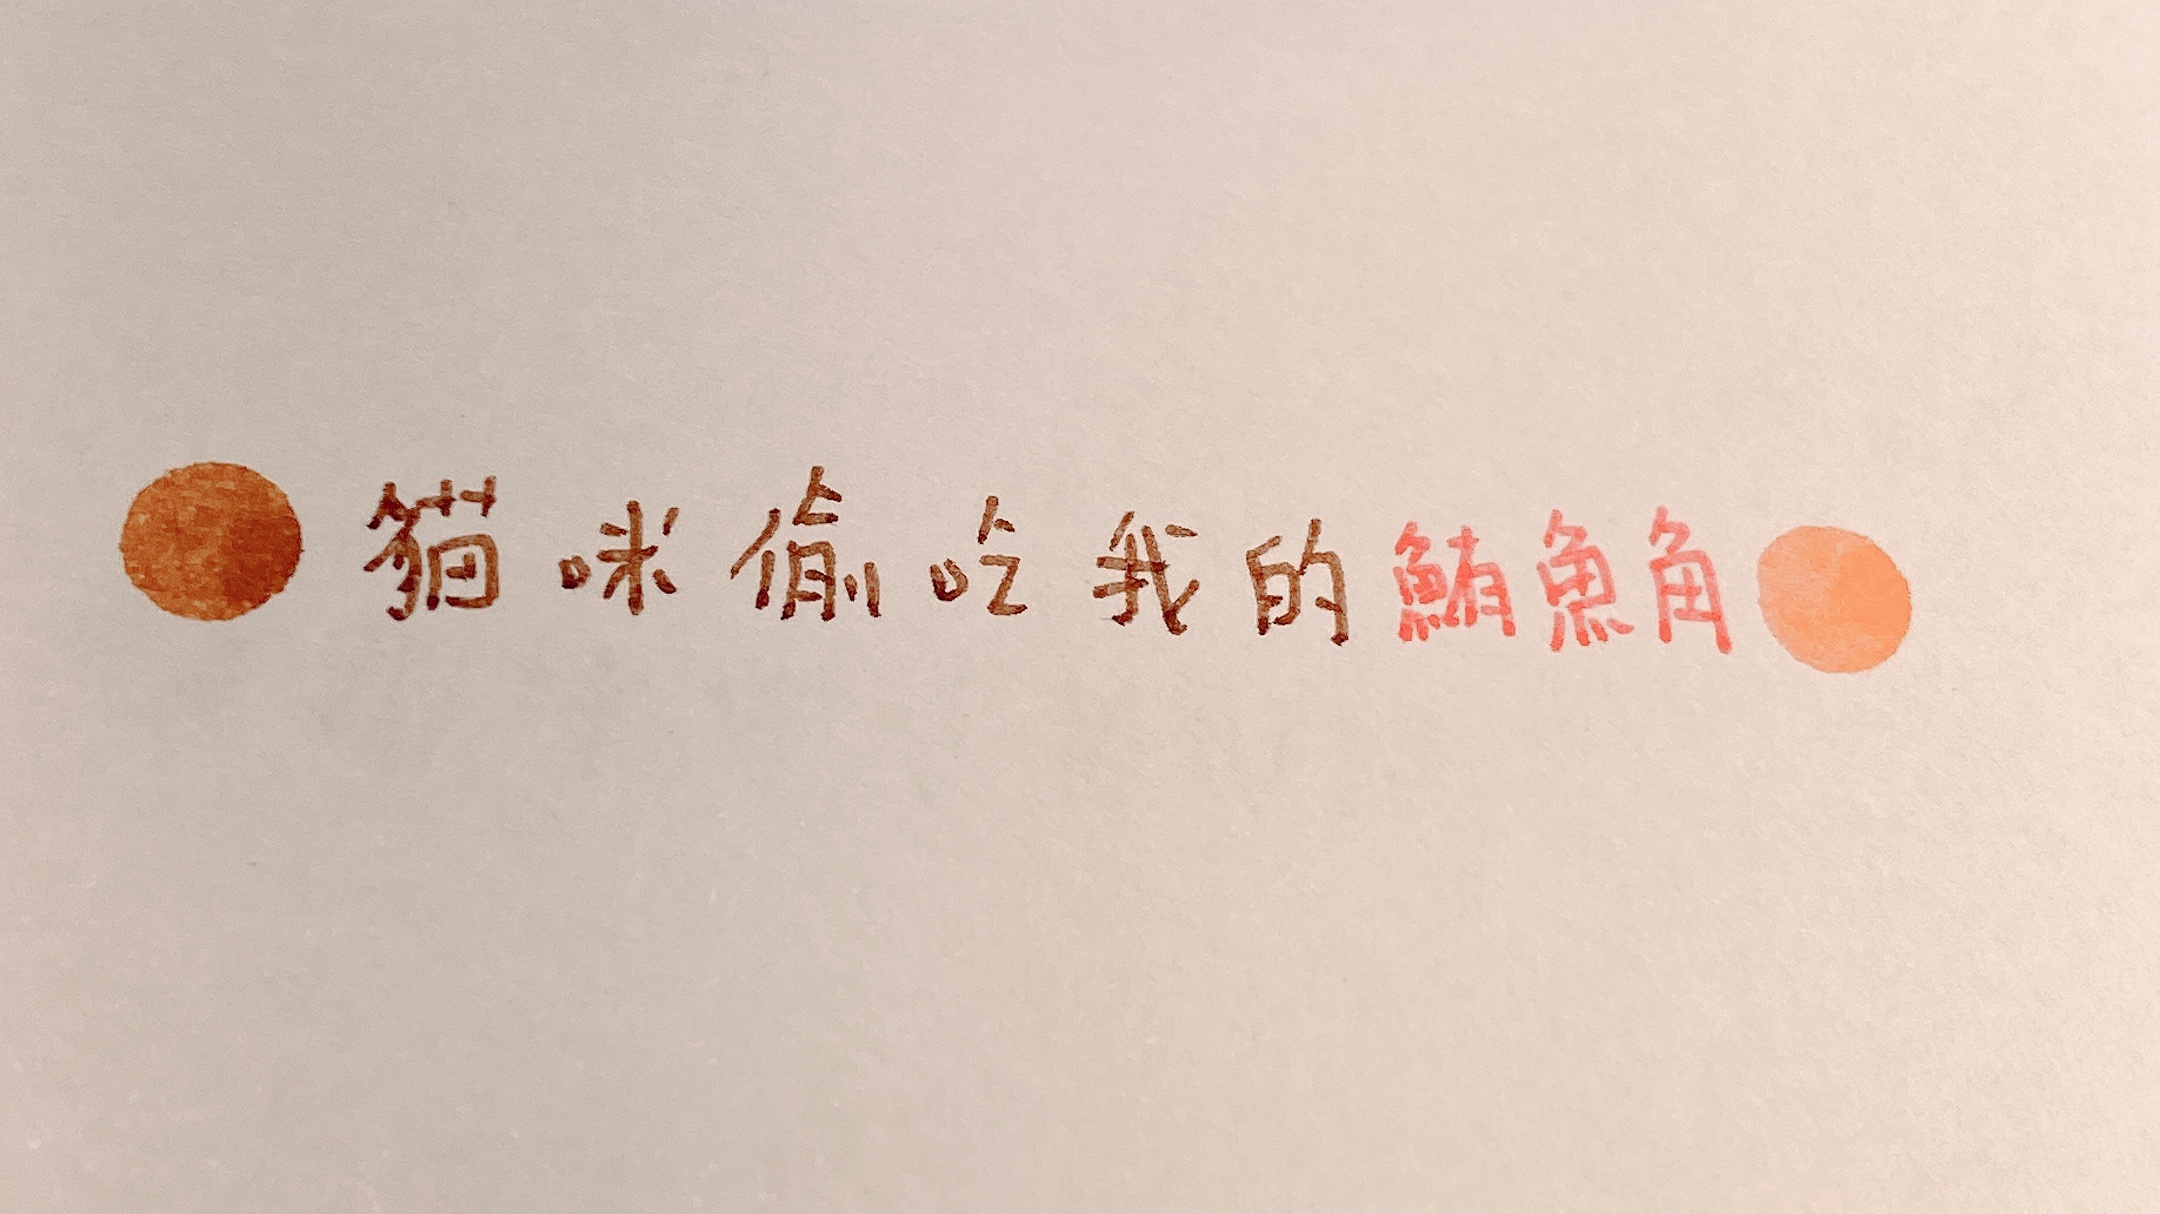 貓咪偷吃我的鮪魚角